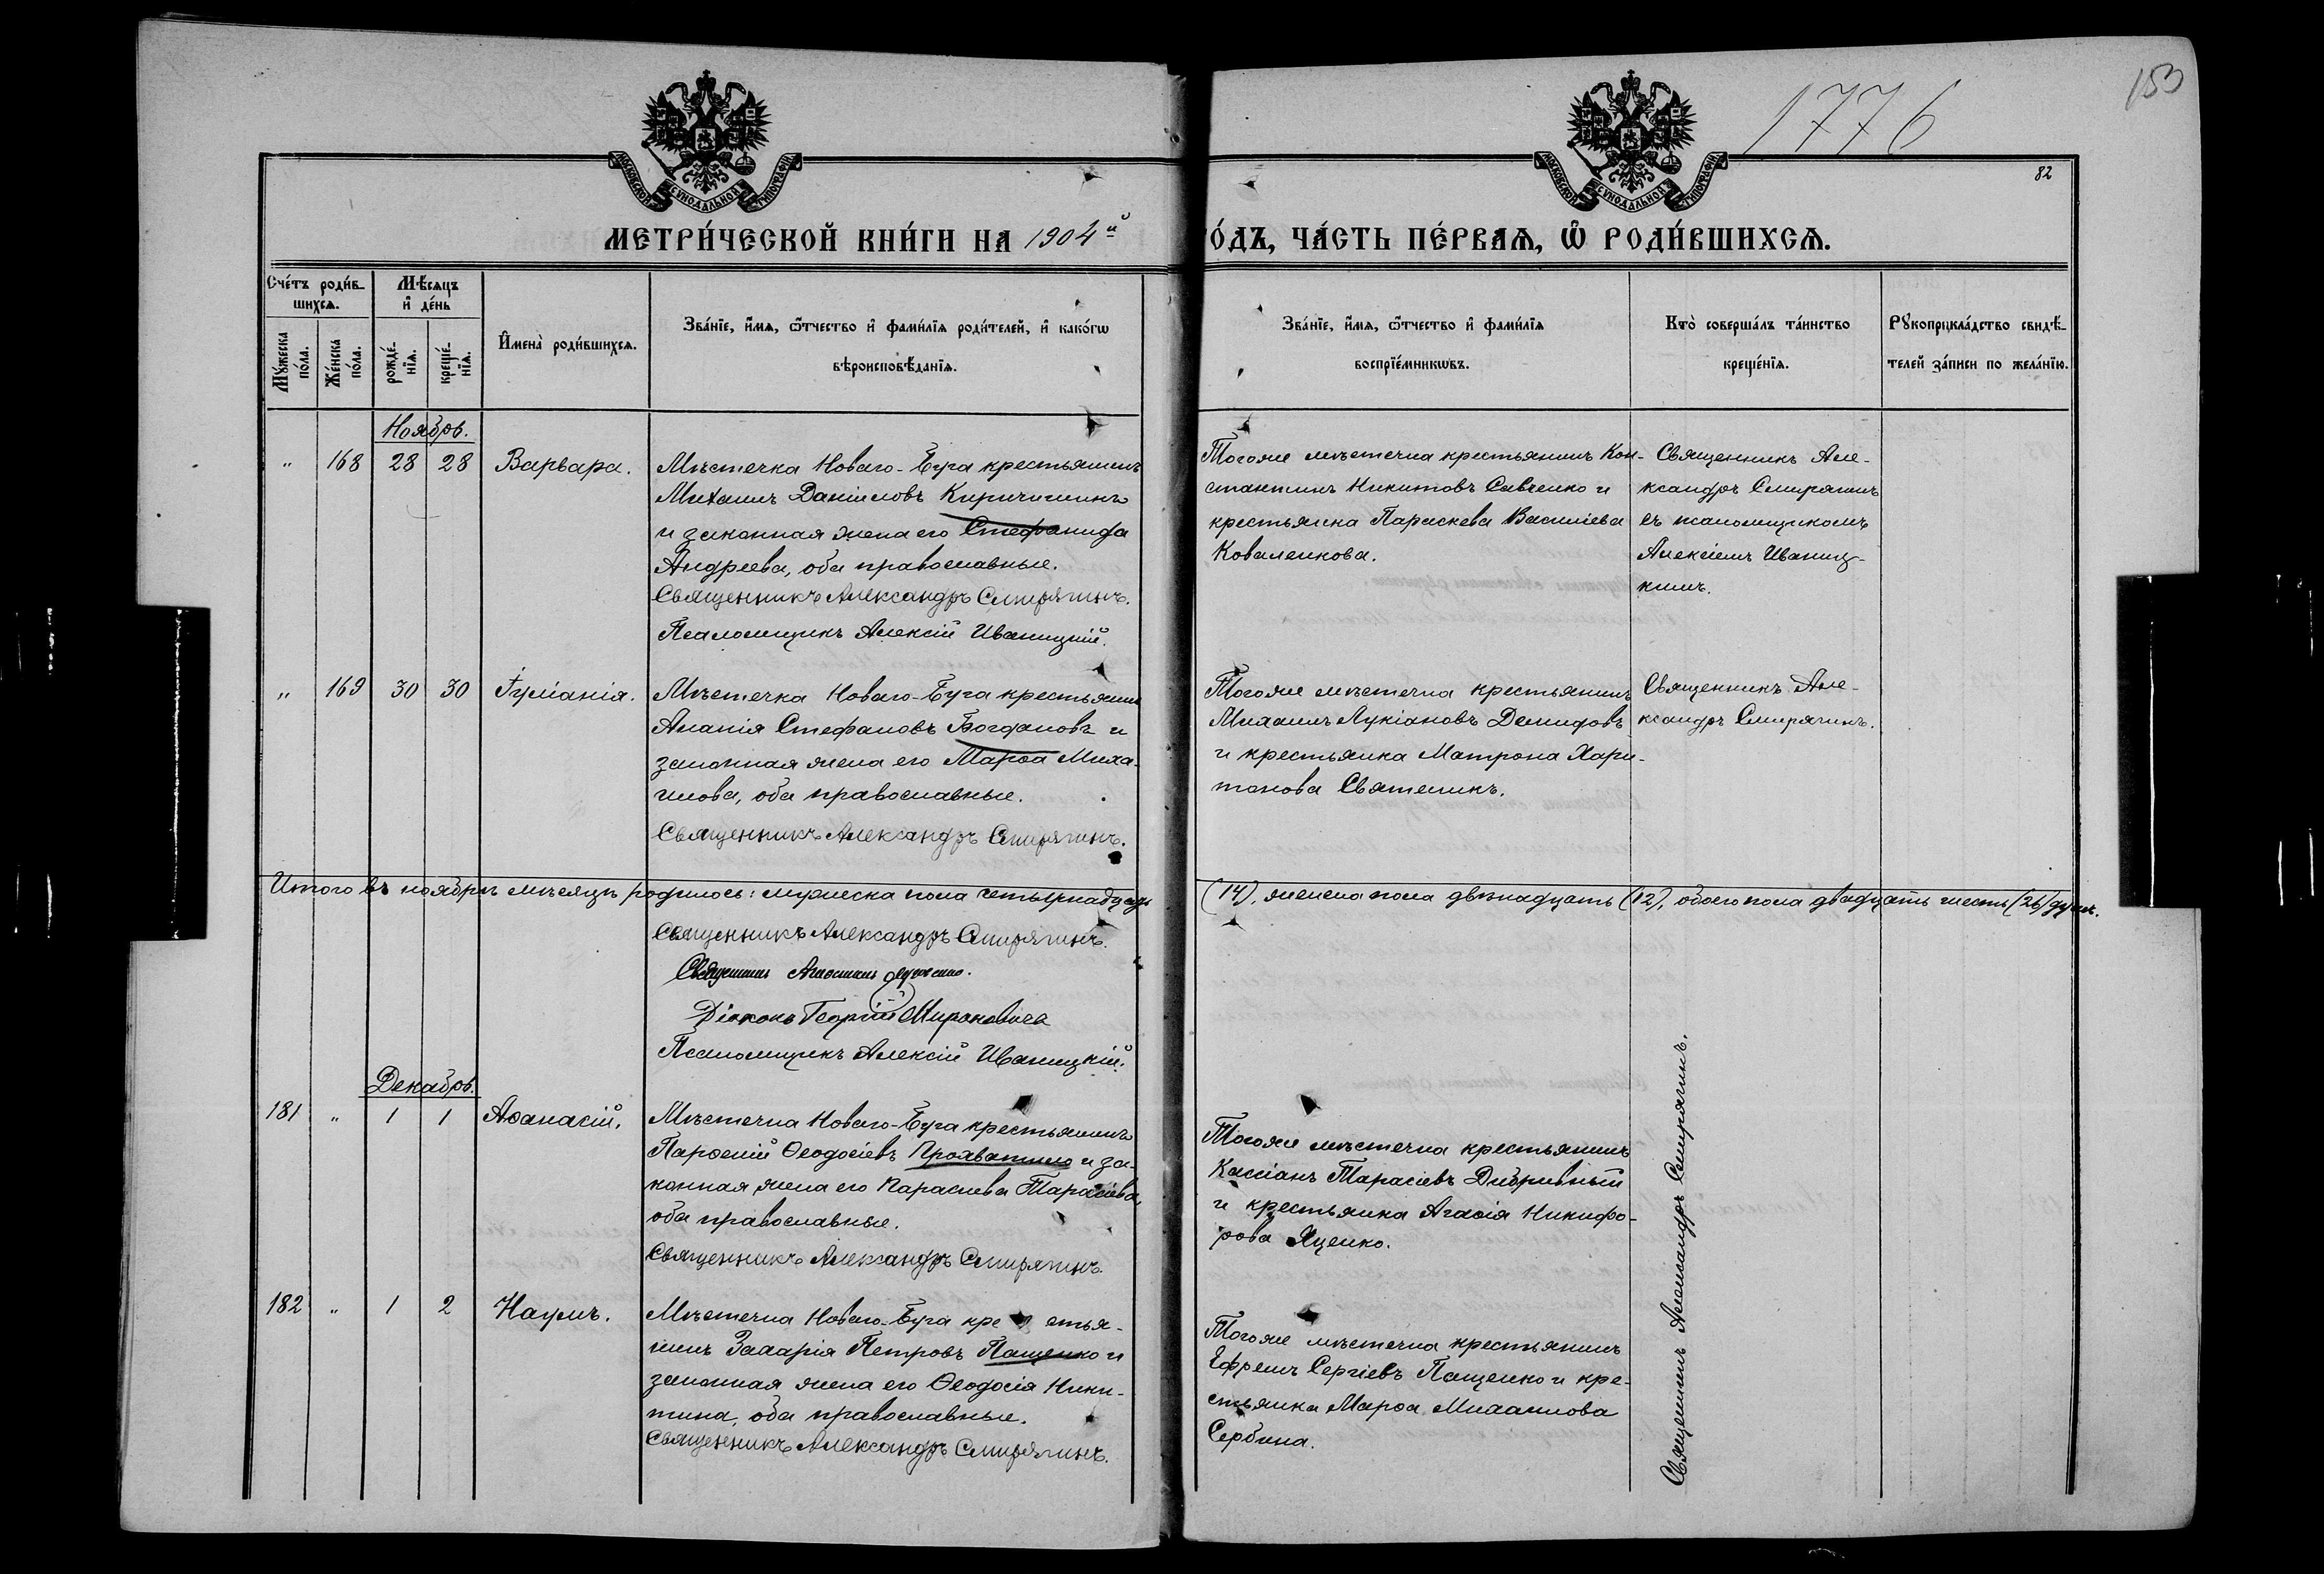 1776
153
МОСКОВСКОЙ СУНОДАЛЬНОЙ ТИПОГРАФІИ
МОСКОВСКОЙ СУНОДАЛЬНОЙ ТИПОГРАФІИ
82
МЕТРИ́ЧЕСКОЙ КНИ́ГИ НА 1904й
О́ДЪ, ЧА́СТЬ ПЕ́РВАѦ, Ѿ РОДИ́ВШИХСѦ.
Сче́тъ роди́в-
шихсѧ.
Мѣ́сѧцъ
и҆ де́нь
Мꙋ́жеска
по́ла.
Же́нска
по́ла.
рожде́-
нїѧ.
креще́-
нїѧ.
И҆мена̀ роди́вшихсѧ.
Зва́нїе, и҆́мѧ, ѻ҆́тчество и҆ фами́лїѧ роди́телей, и҆ како́гѡ
вѣроисповѣ́данїѧ.
Зва́нїе, и҆́мѧ, ѻ҆́тчество и҆ фами́лїѧ
воспрїе́мникѡвъ.
Кто̀ соверша́лъ та́инство
креще́нїѧ.
Рꙋкоприкла́дство свидѣ́-
телей за́писи по жела́нїю.
Ноябрь.
" 168 28 28 Варвара.
Мѣстечка Новаго-Буга крестьянинъ
Михаилъ Даніиловъ Киричишинъ
и законная жена его Стефанида
Андреева, оба православные.
Священникъ Александръ Смирягинъ.
Псаломщикъ Алексій Иваницкій.
Тогоже мѣстечка крестьянинъ Кон-
стантинъ Никитовъ Савченко и
крестьянка Параскева Василіева
Коваленкова.
Священникъ Але-
ксандръ Смирягинъ
съ псаломщикомъ
Алексіемъ Иваниц-
кимъ.
" 169 30 30 Іуліанія.
Мѣстечка Новаго-Буга крестьянинъ
Ананія Стефановъ Богдановъ и
законная жена его Марѳа Миха-
илова, оба православные.
Священникъ Александръ Смирягинъ.
Тогоже мѣстечка крестьянинъ
Михаилъ Лукіановъ Демидовъ
и крестьянка Матрона Хари-
тонова Святешкъ.
Священникъ Але-
ксандръ Смирягинъ.
Итого въ ноябрѣ мѣсяцѣ родилось: мужеска пола четырнадцать (14), женска пола двѣнадцать (12), обоего пола двадцать шесть (26) душъ.
Священникъ Александръ Смирягинъ.
Священникъ
Діаконъ Георгій Мироновичъ
Псаломщикъ Алексій Иваницкій.
Декабрь.
181 " 1 1 Аѳанасій.
Мѣстечка Новаго-Буга крестьянинъ
Парѳеній Ѳеодосіевъ Прохватило и за-
конная жена его Параскева Тарасіева,
оба православные.
Священникъ Александръ Смирягинъ.
Тогоже мѣстечка крестьянинъ
Кассіанъ Тарасіевъ Дибривный
и крестьянка Агаѳія Никифо-
рова Яценко.
Священникъ Александръ Смирягинъ.
182 " 1 2 Наумъ.
Мѣстечка Новаго-Буга кре стья-
нинъ Захарія Петровъ Пащенко и
законная жена его Ѳеодосія Ники-
тина, оба православные.
Священникъ Александръ Смирягинъ.
Тогоже мѣстечка крестьянинъ
Ефремъ Сергіевъ Пащенко и кре-
стьянка Марѳа Михаилова
Сербина.